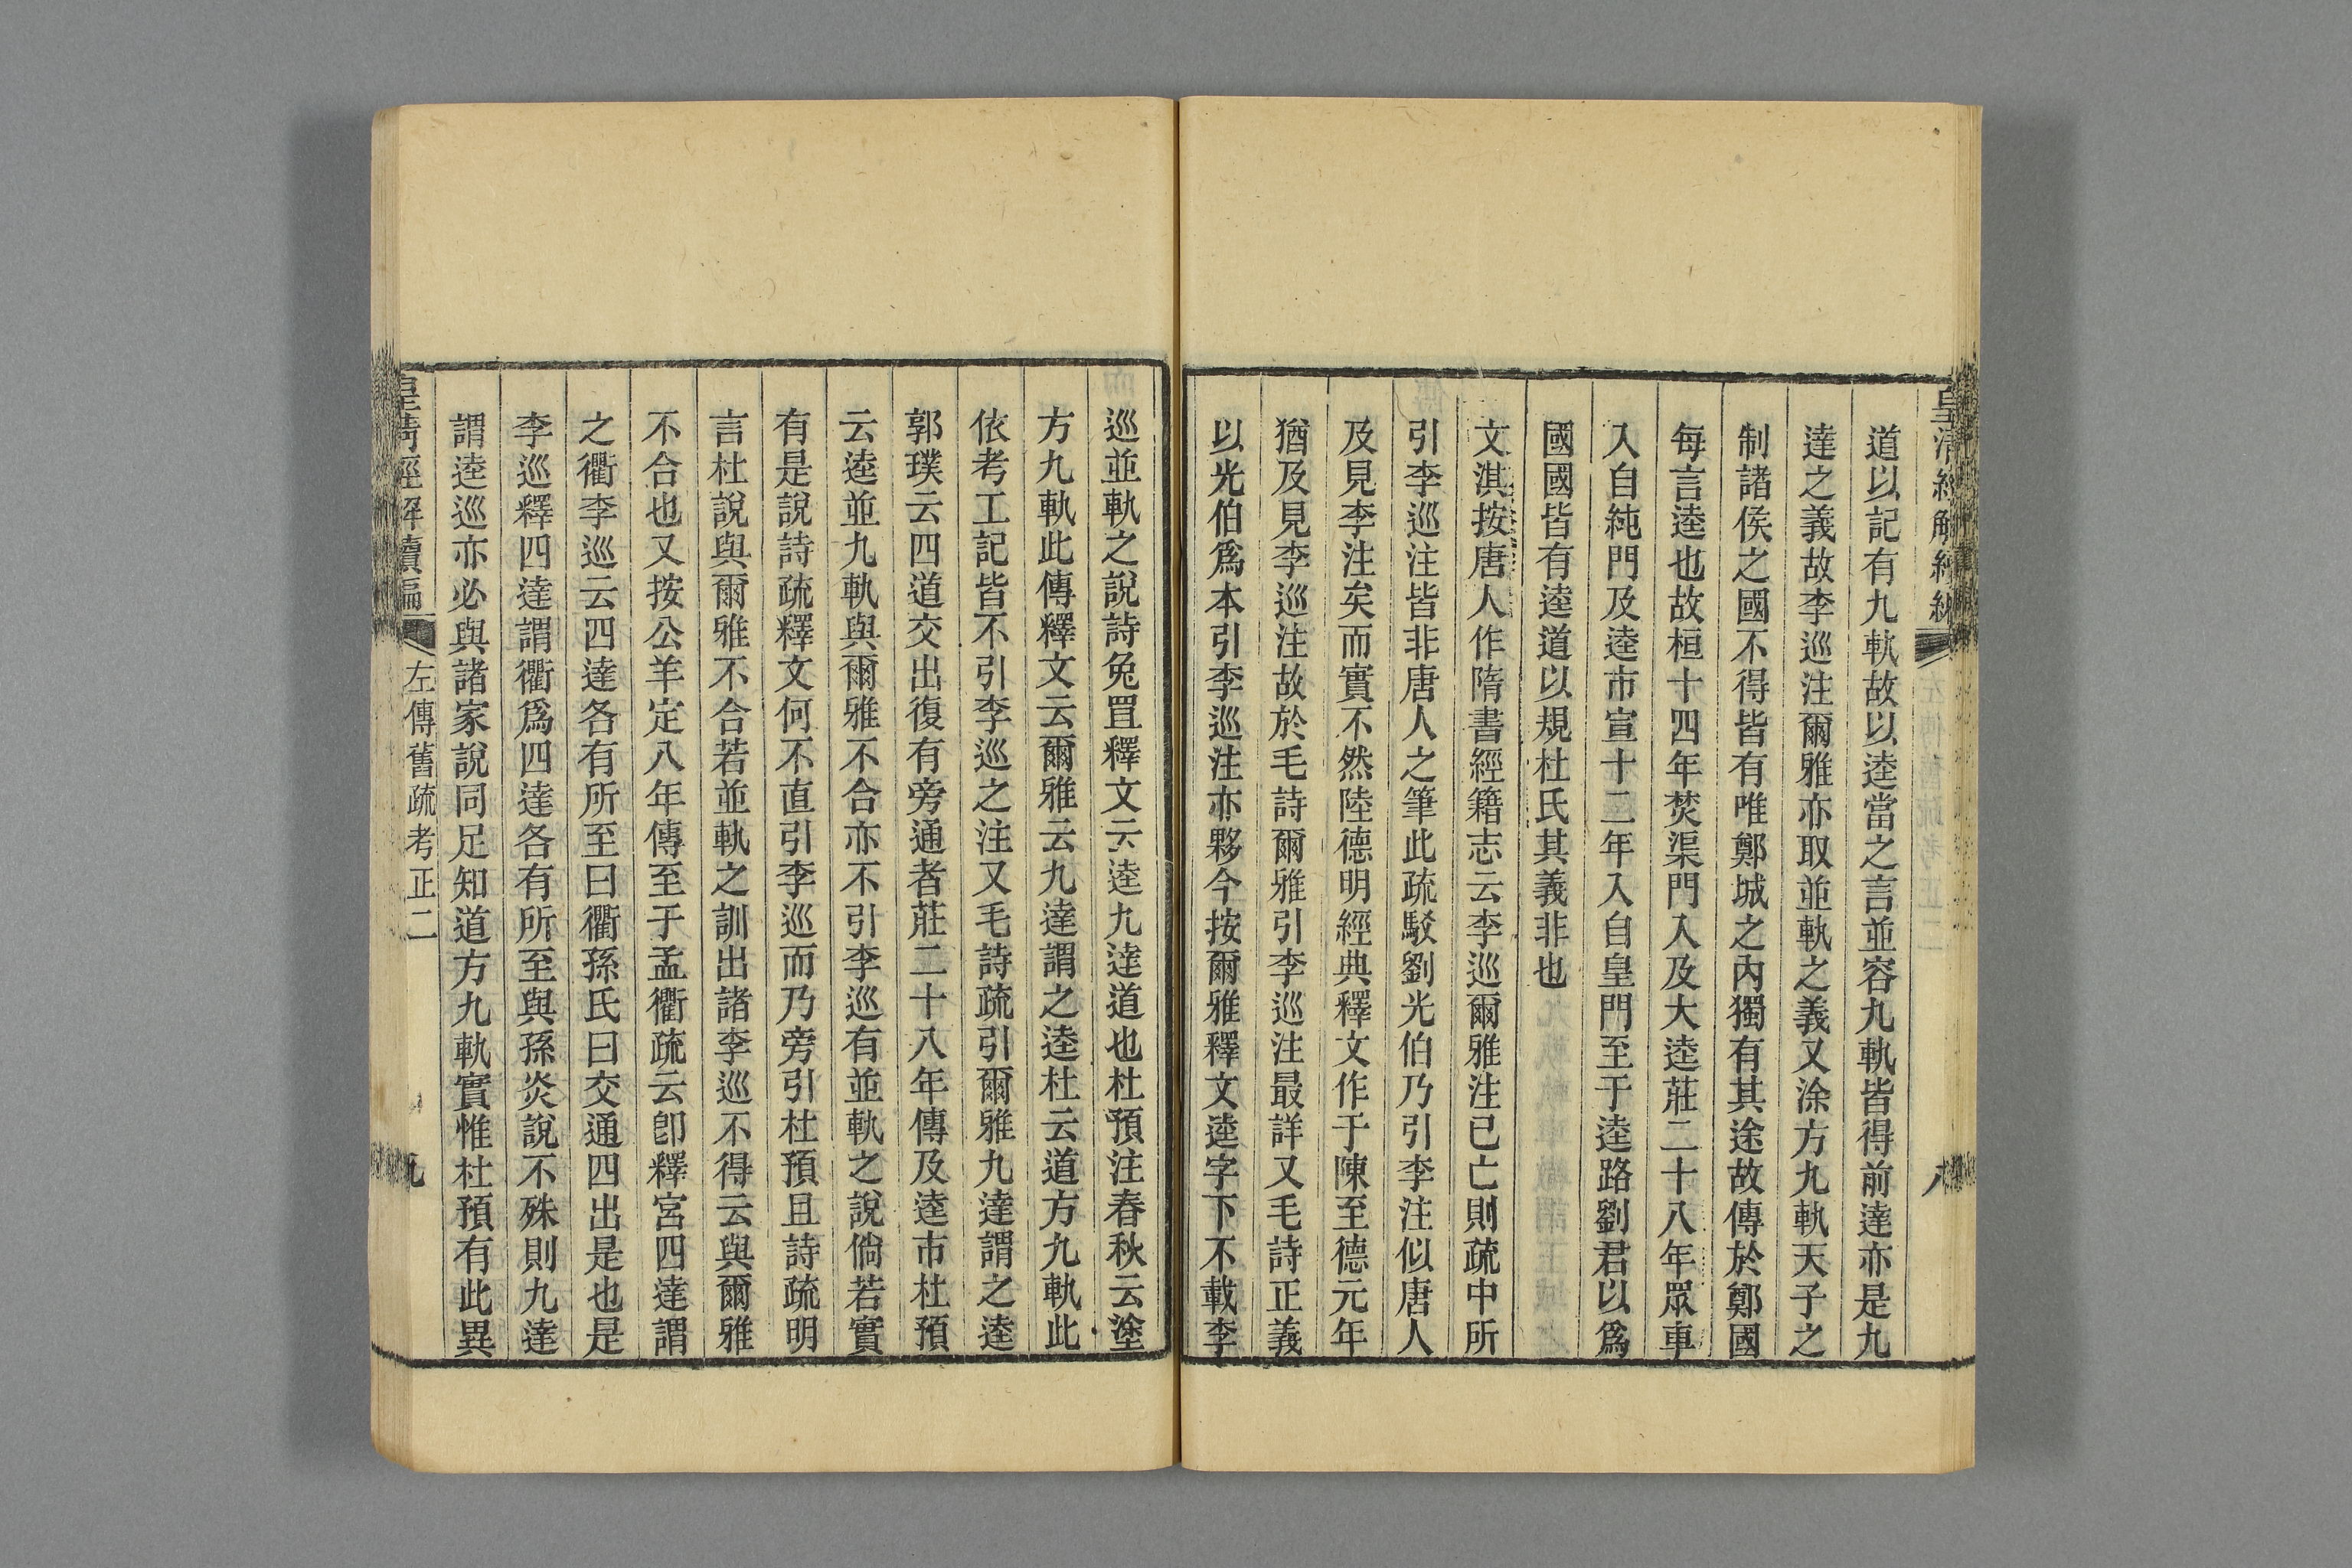 道以記有九軌故以逵當之言並容九軌皆得前達亦是九
達之義故李巡注爾雅亦取並軌之義又涂方九軌天子之
制諸侯之國不得皆有唯鄭城之內獨有其途故傳於鄭國
每言逵也故桓十四年焚渠門入及大逵莊二十八年眾車
入自純門及逵市宣十二年入自皇門至于逵路劉君以爲
國國皆有逵道以規杜氏其義非也
文淇按唐人作隋書經籍志云李巡爾雅注已亡則疏中所
引李巡注皆非唐人之筆此疏駁劉光伯乃引李注似唐人
及見李注矣而實不然陸德明經典釋文作于陳至德元年
猶及見李巡注故於毛詩爾雅引李巡注最詳又毛詩正義
以光伯爲本引李巡注亦夥今按爾雅釋文逵字下不載李
巡並軌之說詩兔罝釋文云逵九達道也杜預注春秋云塗
方九軌此傳釋文云爾雅云九達謂之逵杜云道方九軌此
依考工記皆不引李巡之注又毛詩疏引爾雅九達謂之逵
郭璞云四道交出復有旁通者莊二十八年傳及逵市杜預
云逵並九軌與爾雅不合亦不引李巡有並軌之說倘若實
有是說詩疏釋文何不直引李巡而乃旁引杜預且詩疏明
言杜說與爾雅不合若並軌之訓出諸李巡不得云與爾雅
不合也又按公羊定八年傳至于孟衢疏云卽釋宮四達謂
之衢李巡云四達各有所至曰衢孫氏曰交通四出是也是
李巡釋四達謂衢爲四達各有所至與孫炎說不殊則九達
謂逵巡亦必與諸家說同足知道方九軌實惟杜預有此異
皇清經解續編 左傳舊疏考正二 九